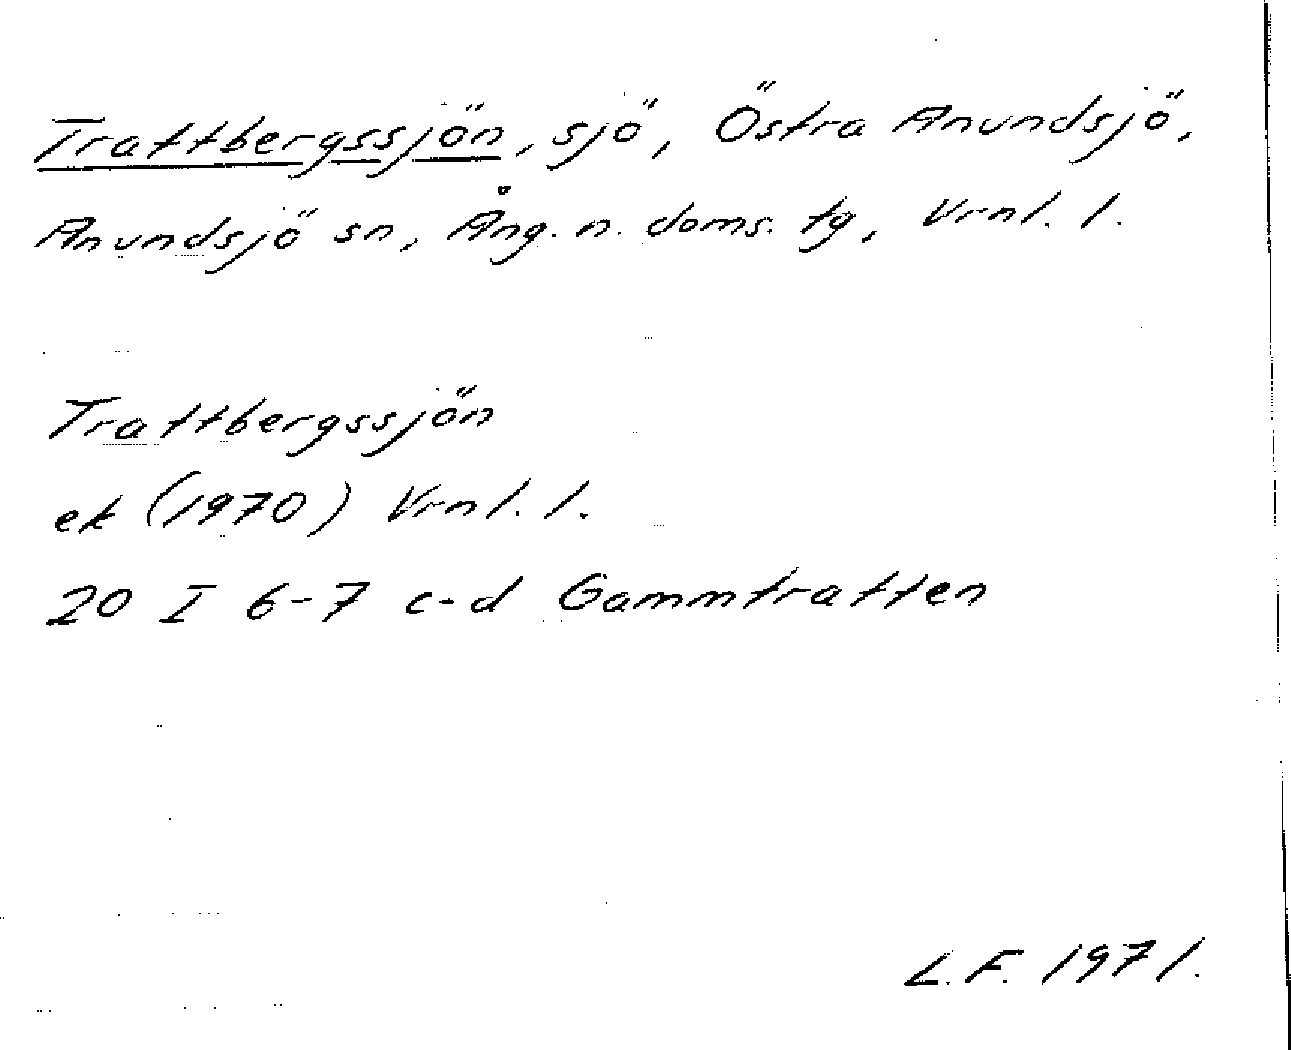 Trattbergssjön, sjö, Östra Anundsjö,
Anundsjö sn, Ång. n. doms. tg, Vrnl. l.
Trattbergssjön
ek (1970) Vrnl. l.
20 I 6-7 c-d Gammtratten
L.F. 1971.